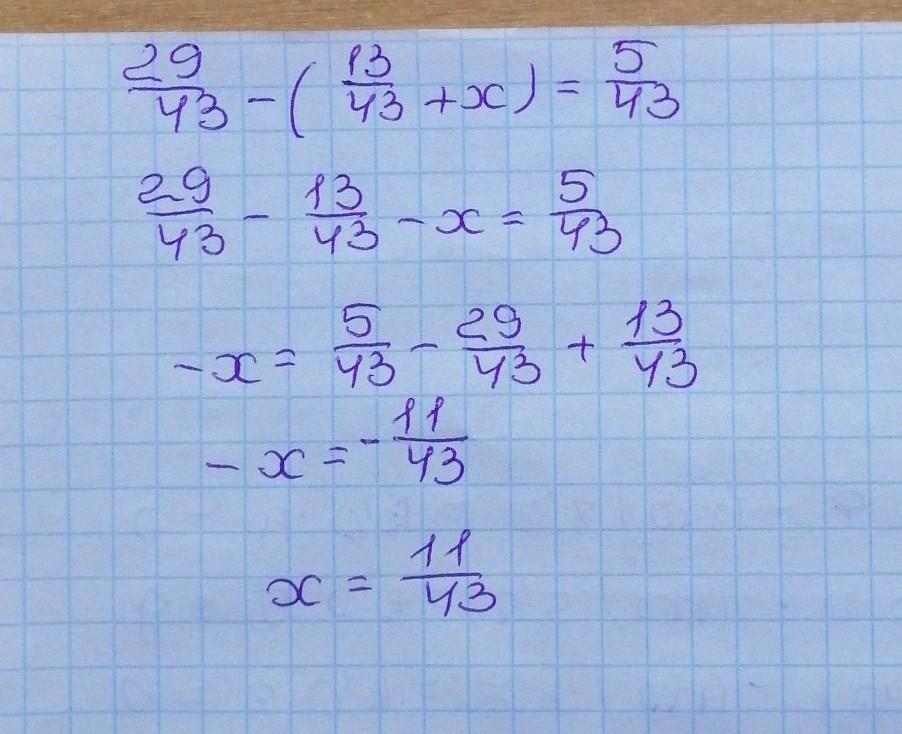 29/43 - (13/43 + x) = 5/43
29/43 - 13/43 - x = 5/43
-x = 5/43 - 29/43 + 13/43
-x = -11/43
x = 11/43